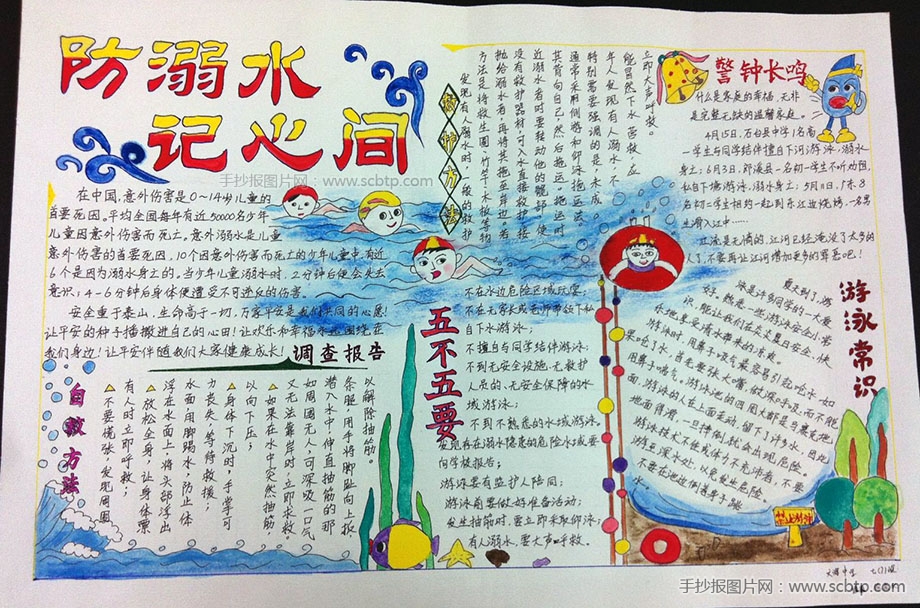 防溺水
记心间
手抄报图片网：www.scbtp.com
在中国,意外伤害是0～14岁儿童的
首要死因。平均全国每年有近50000名少年
儿童因意外伤害而死亡。意外溺水是儿童
意外伤害的首要死因,10个因意外伤害而死亡的少年儿童中,有近
6个是因为溺水身亡的。当少年儿童溺水时,2分钟后便会失去
意识；4-6分钟后身体便遭受不可逆反的伤害。
安全重于泰山,生命高于一切,万家平安是我们共同的心愿!
让平安的种子播撒进自己的心田!让欢乐和幸福永远围绕在
我们身边!让平安伴随我们大家健康成长!
调查报告
自救方法
不要慌张,发现周围
有人时立即呼救；
放松全身,让身体漂
浮在水面上,将头部浮出
水面,用脚踢水,防止体
力丧失,等待救援；
身体下沉时,手掌可
以向下压；
如果在水中突然抽筋,
又无法靠岸时,立即求救。
如周围无人,可深吸一口气
潜入水中,伸直抽筋的那
条腿,用手将脚趾向上扳,
以解除抽筋。
救护方法
发现有人溺水时,一般的救护
方法是将救生圈、竹竿、木板等物
抛给溺水者,再将其拖至岸边；若
没有救护器材,可入水直接救护。接
近溺水者时要转动他的髋部,使
其背向自己,然后拖运。拖运时
通常采用侧泳和仰泳拖运法。
特别需要强调的是,未成
年人发现有人溺水,不
能冒然下水营救,应
立即大声呼救。
五不五要
不在水边危险区域玩耍；
不在无家长或老师带领下私
自下水游泳；
不擅自与同学结伴游泳；
不到无安全设施、无救护
人员的、无安全保障的水
域游泳；
不到不熟悉的水域游泳。
发现有在溺水隐患的危险水域要
向学校报告；
游泳要有监护人陪同；
游泳前要做好准备活动；
发生抽筋时,要立即采取仰泳；
有人溺水,要大声呼救。
警钟长鸣
什么是家庭的幸福,无非
是完整无缺的温馨家庭。
4月15日,万
一学生与同学结伴擅自下河游泳,溺水
身亡；6月3日,
私自下塘游泳,溺水身亡；5月11日,
8名初二学生相约一起到东江边烧烤,一名男
生滑入江中……
江流是无情的,江河已经淹没了太多的
人了,不要再让江河增加更多的罪恶吧!
游泳常识
夏天到了,游
泳是许多同学的一大爱
好。熟悉一些游泳安全小常
识,能让我们在炎炎夏日安全、快
乐地享受清水带来的凉爽。
游泳时,用鼻子吸气最容易引起呛水,如
果呛了水,首先要张大嘴,做深呼吸,而不能
用鼻子喘气。游泳池的四周大都是马赛克地
面,游泳的人在上面走动,留下了许多水,因此
地面滑,一旦摔倒,就会出现危险。
游泳技术不佳或体力不充沛者,不要
游至深水处,以免发生危险。
不要在池边倒着身子跳
水。
禁止游泳
手抄报图片网：www.scbtp.com